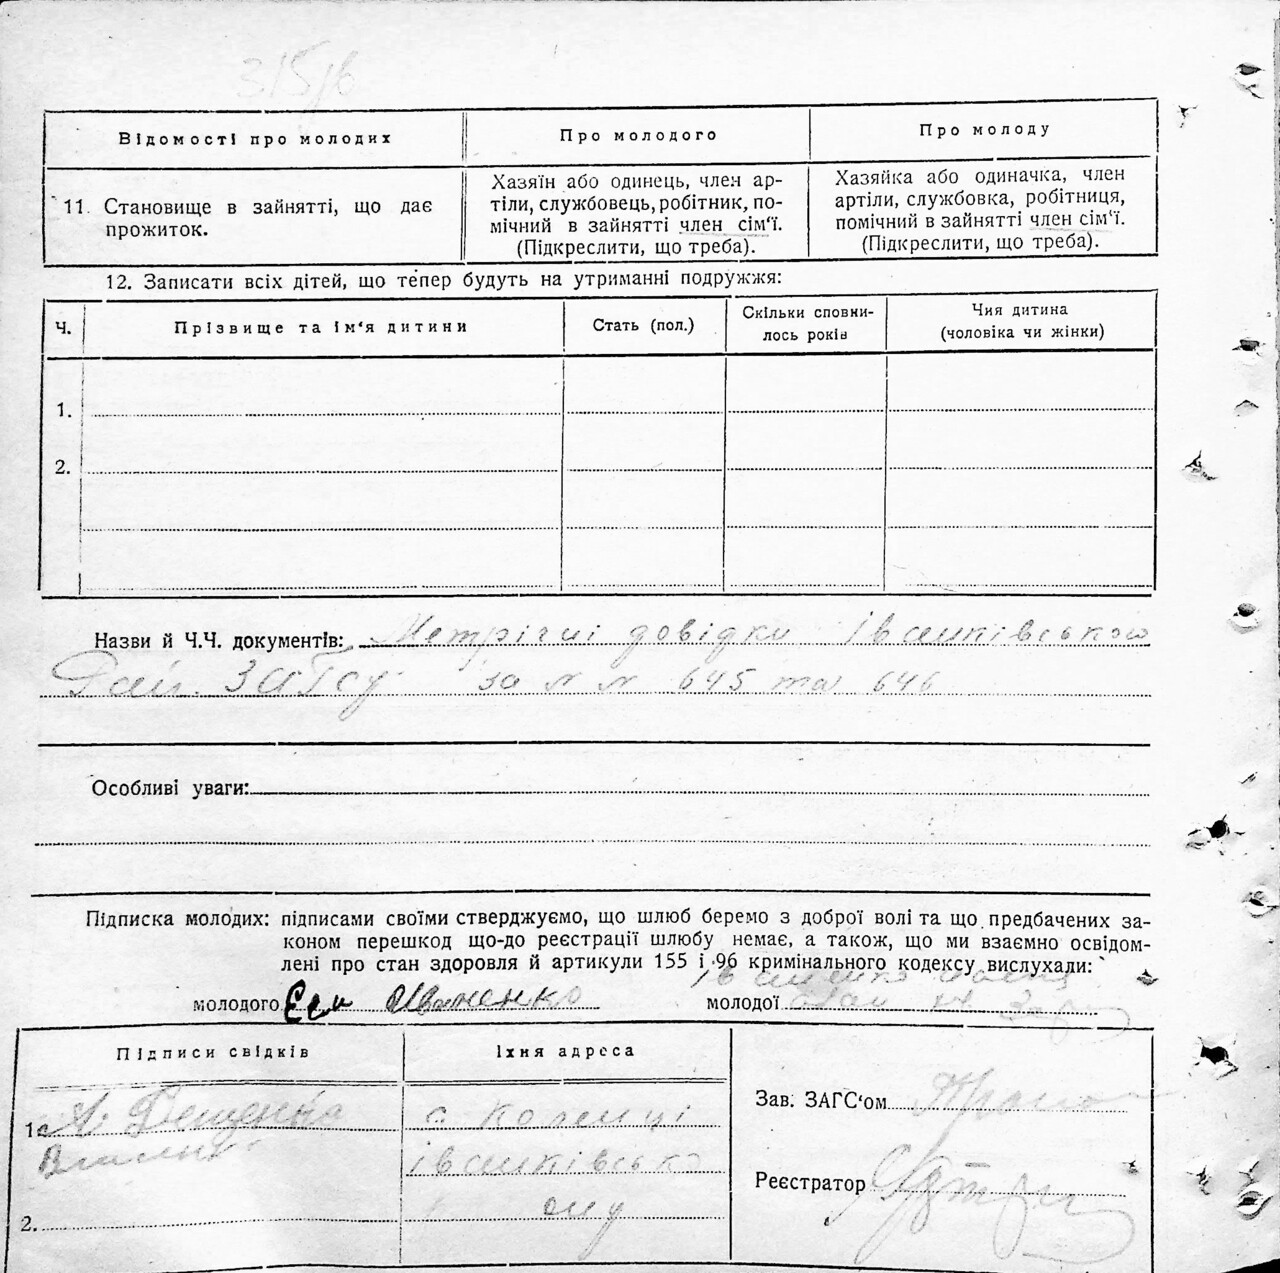 315/в
Відомості про молодих
Про молодого
Про молоду
11. Становище в зайнятті, що дає
прожиток.
Хазяїн або одинець, член ар-
тіли, службовець, робітник, по-
мічний в зайнятті член сім‘ї.
(Підкреслити, що треба).
Хазяйка або одиначка, член
артіли, службовка, робітниця,
помічний в зайнятті член сім‘ї.
(Підкреслити, що треба).
12. Записати всіх дітей, що тепер будуть на утриманні подружжя:
Ч.
Прізвище та ім‘я дитини
Стать (пол.)
Скільки сповни-
лось років
Чия дитина
(чоловіка чи жінки)
1.
2.
Назви й Ч.Ч. документів: Метрічні довідки Іванківського
Рай. ЗАГСу за NN 645 та 646
Особливі уваги:
Підписка молодих: підписами своїми стверджуємо, що шлюб беремо з доброї волі та що предбачених за-
коном перешкод що-до реєстрації шлюбу немає, а також, що ми взаємно освідом-
лені про стан здоровля й артикули 155 і 96 кримінального кодексу вислухали:
молодого Иваненко
молодої
Підписи свідків
Їхня адреса
1. А. Деценко
с Коленці
іванківсько
ону
2.
Зав. ЗАГС‘ом
Реєстратор